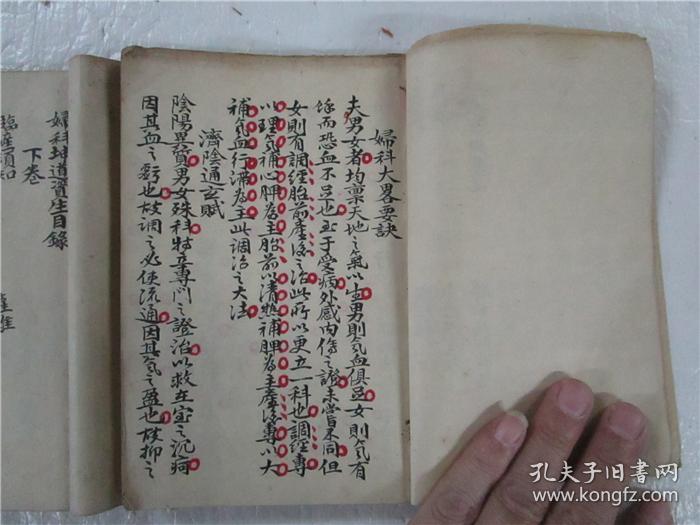 婦科大畧要訣
夫男女者均禀天地之氣以生男則氣血俱足女則氣有
餘而恐血不足也至于受病外感內傷之證未嘗不同但
女則有調經胎前產後之治此所以更立一科也調經專
以理氣補心脾為主胎前以清熱補脾為主產後專以大
補氣血行滯為主此調治之大法
濟陰通玄賦
陰陽異質男女殊科特立專門之證治以救在室之沉痾
因其血之虧也故調之必使流通因其氣之盈也故抑之
婦科坤道資生目錄
下卷
臨產須知
孔夫子旧书网
www.kongfz.com